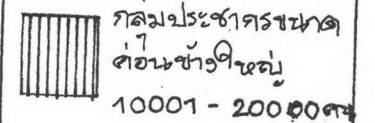 กลุ่มประชากรขนาด
ค่อนข้างใหญ่
10001 - 20000 คน